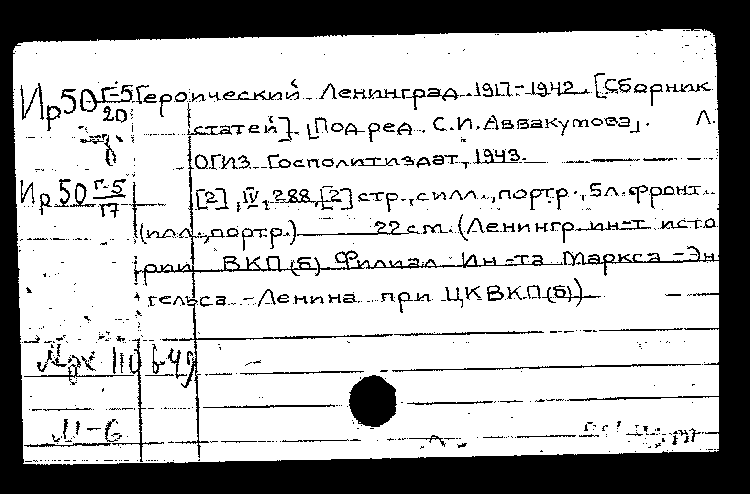 Ир50 Г-5/20 Героический Ленинград. 1917-1942. [Сборник
статей]. [Под ред. С.И. Аввакумова]. Л.
ОГИЗ. Госполитиздат, 1943.
Ир50 Г-5/17 [2], IV, 288, [2] стр., с илл., портр., 5 л. фронт.
(илл., портр.) 22 см. (Ленингр. ин-т исто
рии ВКП(б) Филиал Ин-та Маркса-Эн
гельса-Ленина при ЦКВКП(б))
110
М-6